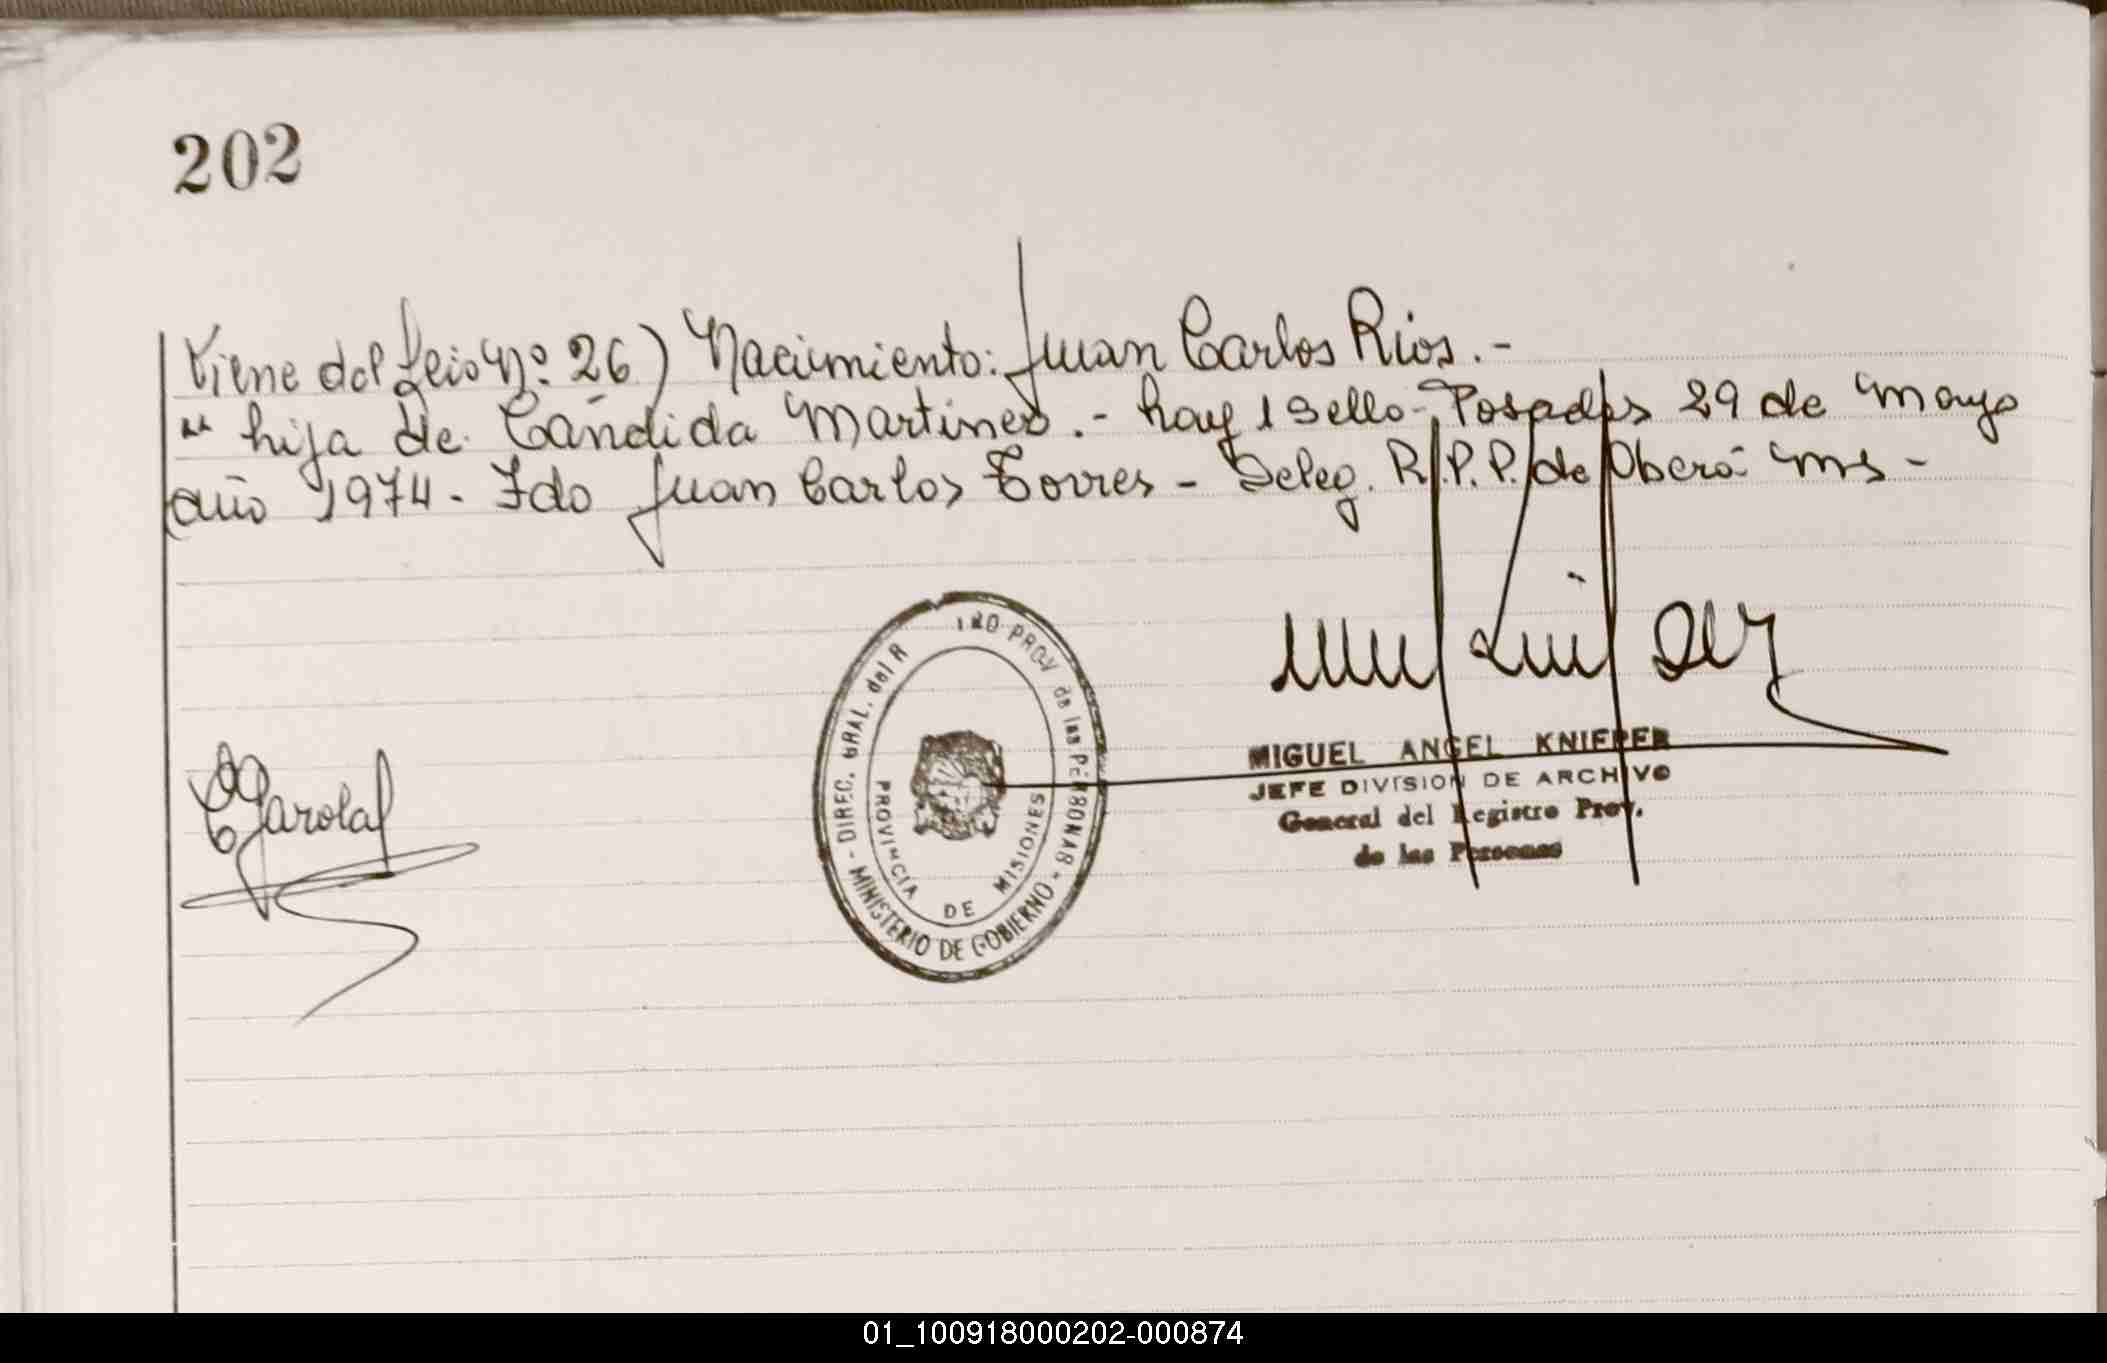 202
Viene del folio Nº 26) Nacimiento: Juan Carlos Rios.-
" hija de Cándida Martinez.- hay 1 Sello- Posadas 29 de Mayo
año 1974. Fdo Juan Carlos Torres - Deleg. R.P.P. de Oberá Mns -
DIREC. GRAL. del R TRO PROV de las PERSONAS - MINISTERIO DE GOBIERNO -
PROVINCIA DE MISIONES
MIGUEL ANGEL KNIEPER
JEFE DIVISION DE ARCHIVO
General del Registro Prov.
de las Personas
01_100918000202-000874